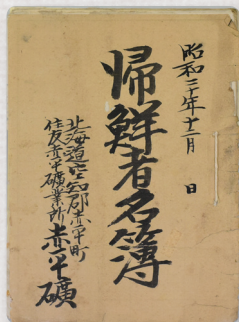 昭和二十年十二月　日
帰鮮者名簿
北海道空知郡赤平町
住友赤平礦業所赤平礦